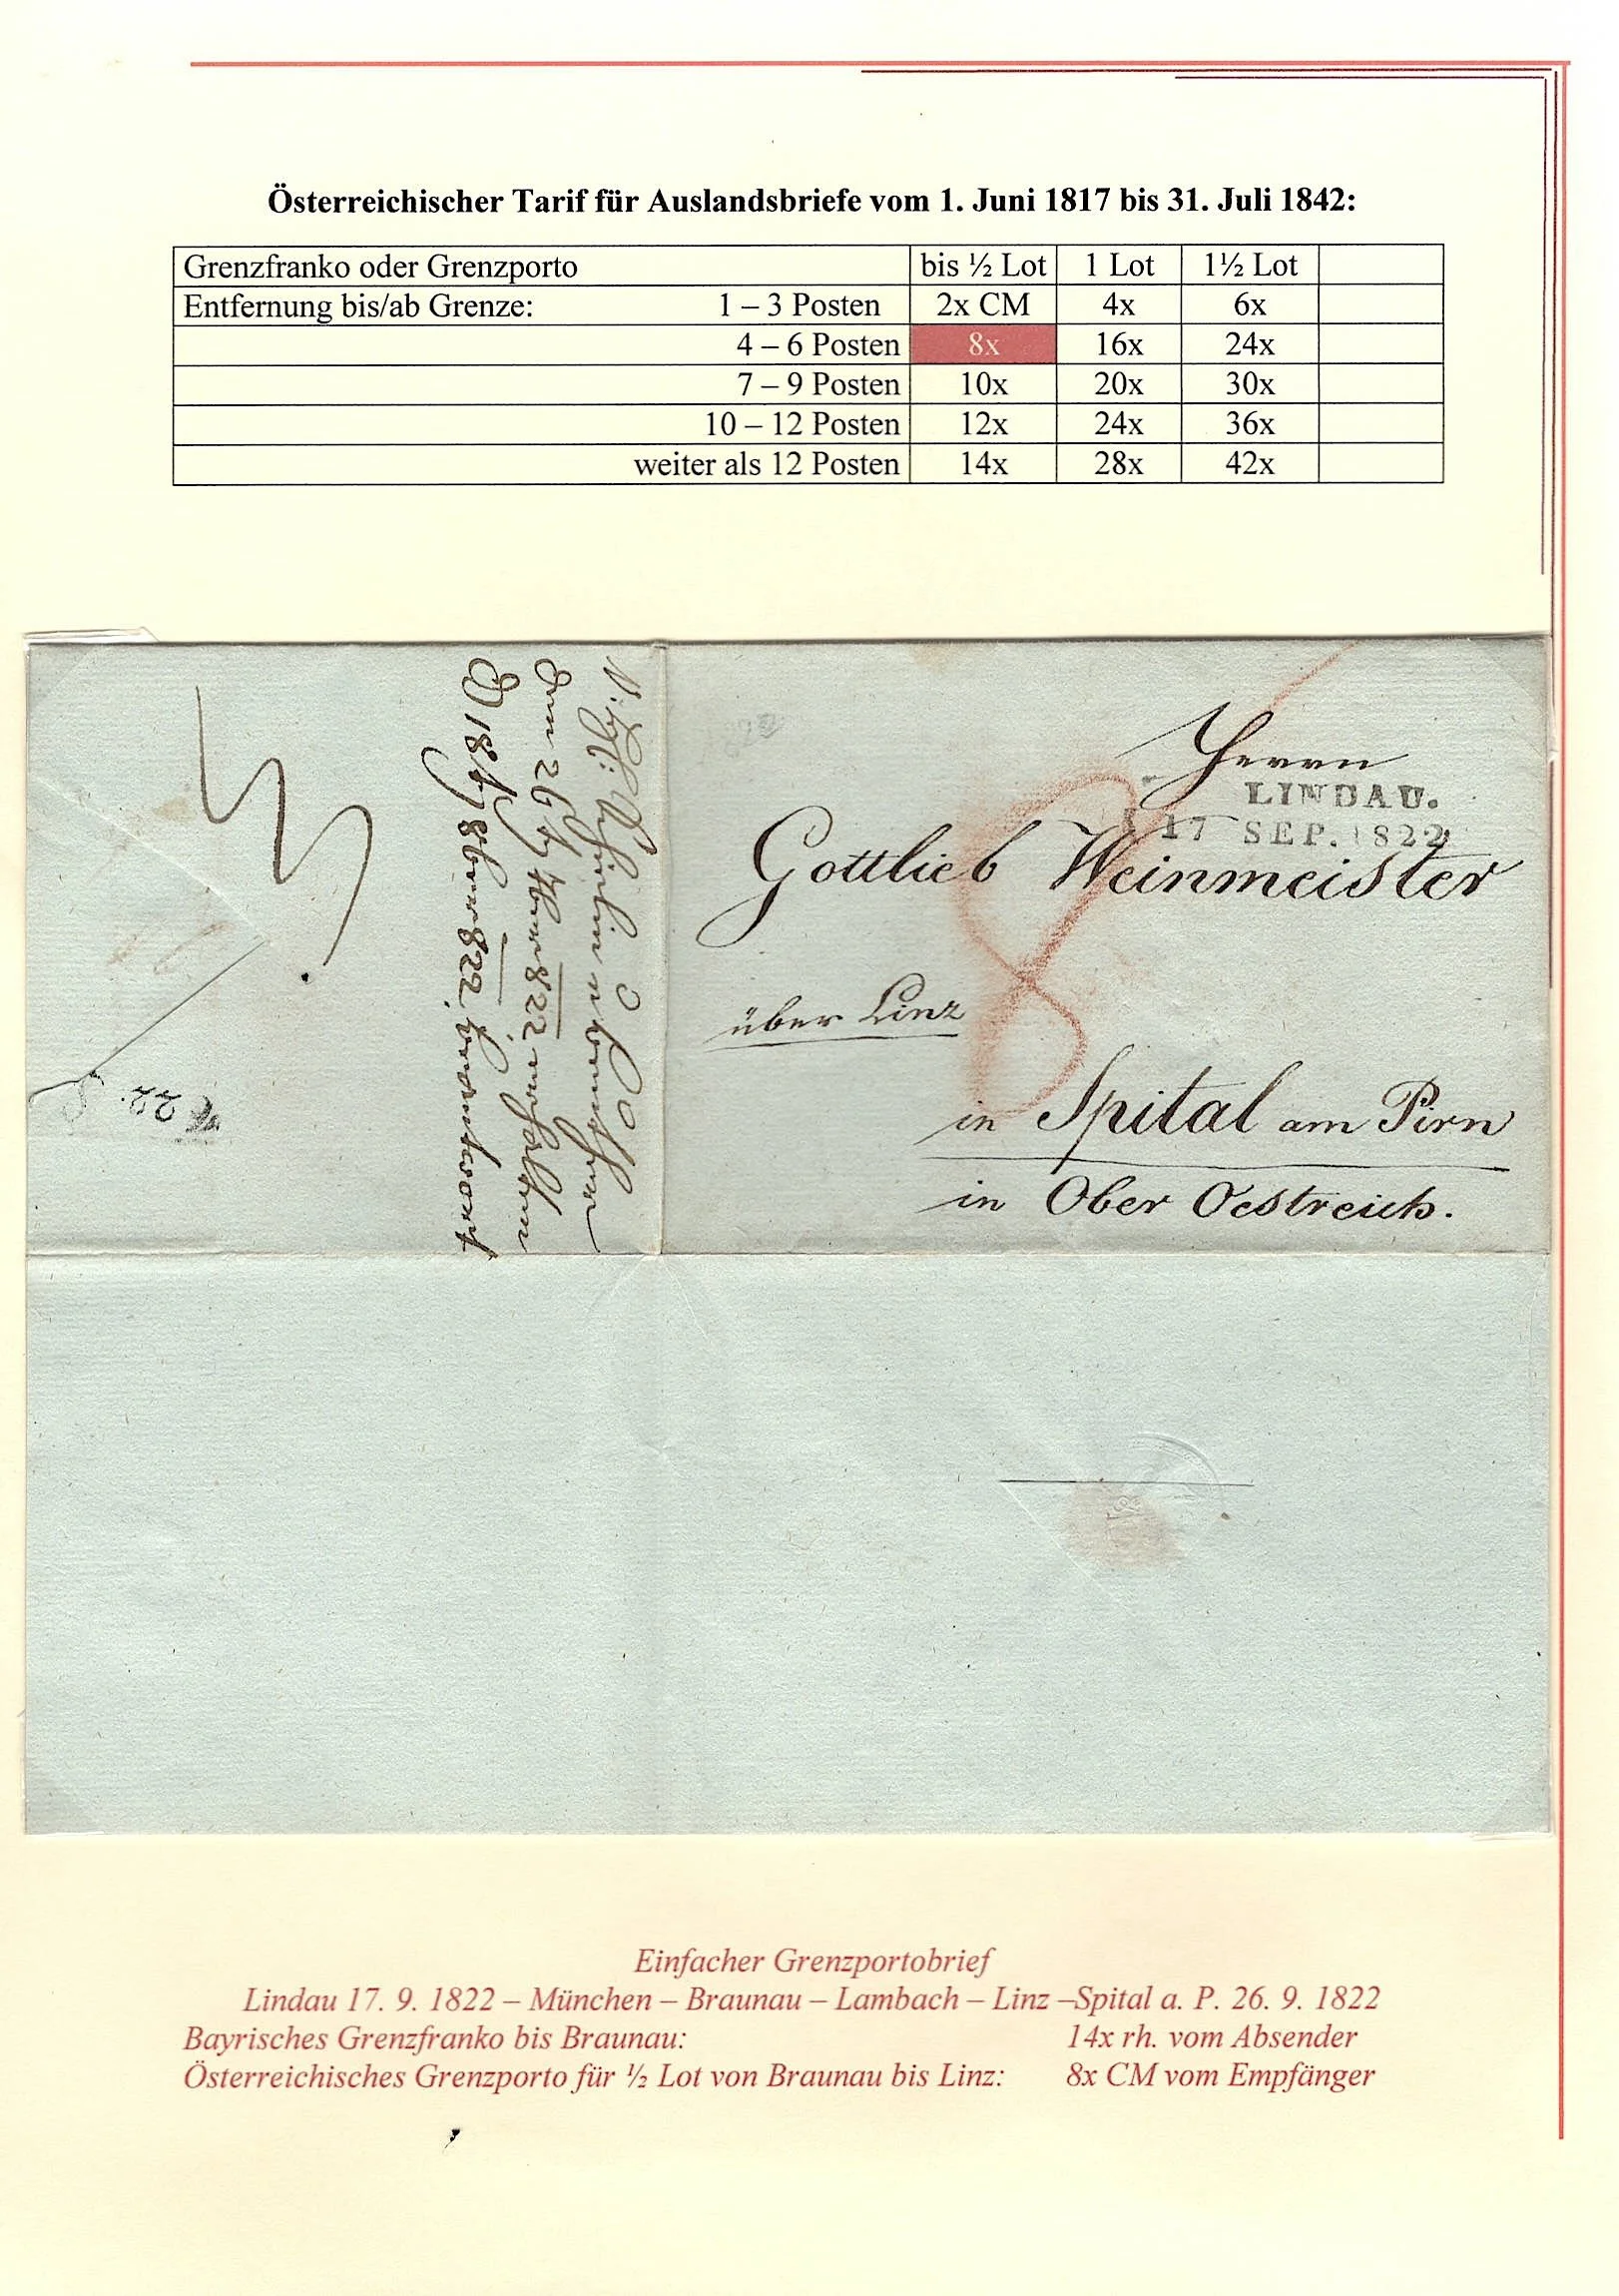 Österreichischer Tarif für Auslandsbriefe vom 1. Juni 1817 bis 31. Juli 1842:
Grenzfranko oder Grenzporto bis ½ Lot 1 Lot 1½ Lot
Entfernung bis/ab Grenze: 1 – 3 Posten 2x CM 4x 6x
4 – 6 Posten 8x 16x 24x
7 – 9 Posten 10x 20x 30x
10 – 12 Posten 12x 24x 36x
weiter als 12 Posten 14x 28x 42x
Herrn
LINDAU.
17 SEP. 1822
Gottlieb Weinmeister
8
über Linz
in Spital am Pirn
in Ober Oestreich.
Einfacher Grenzportobrief
Lindau 17. 9. 1822 – München – Braunau – Lambach – Linz –Spital a. P. 26. 9. 1822
Bayrisches Grenzfranko bis Braunau: 14x rh. vom Absender
Österreichisches Grenzporto für ½ Lot von Braunau bis Linz: 8x CM vom Empfänger